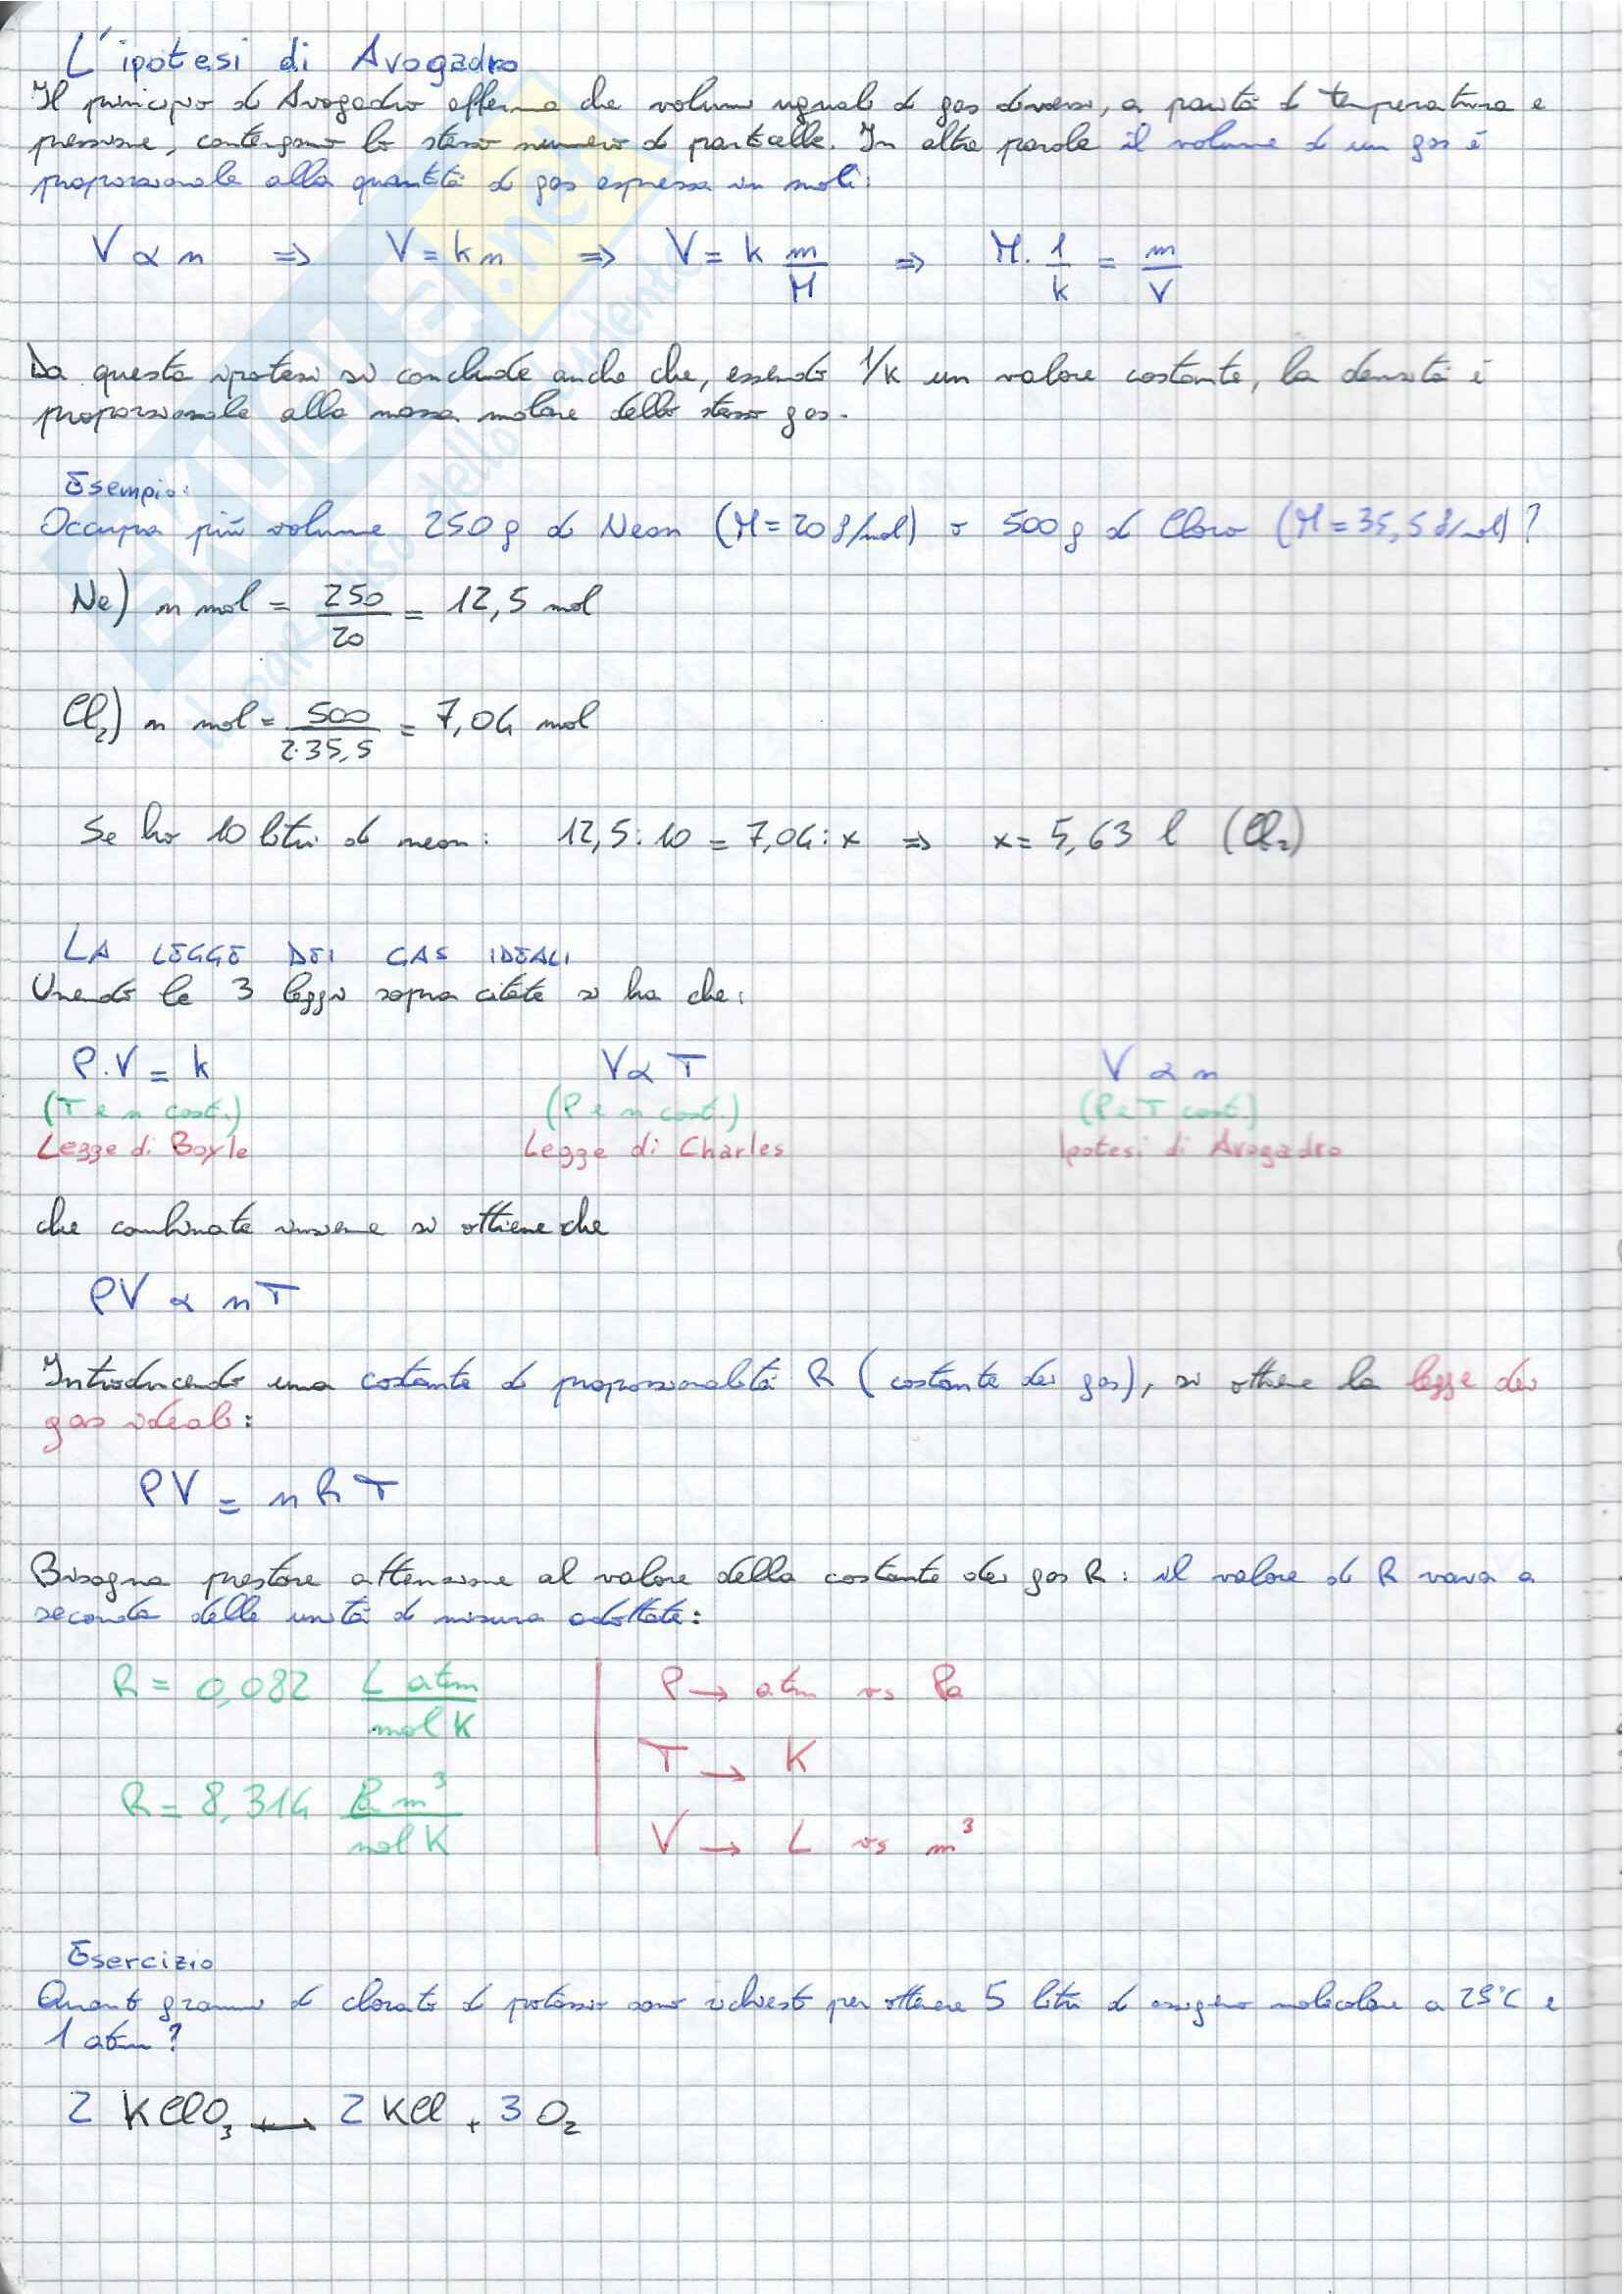 L'ipotesi di Avogadro
Il principio di Avogadro afferma che volumi uguali di gas diversi, a parità di temperatura e
pressione, contengono lo stesso numero di particelle. In altre parole il volume di un gas è
proporzionale alla quantità di gas espressa in moli:
V ∝ n ⇒ V = k n ⇒ V = k m/M ⇒ M · 1/k = m/V
Da questa ipotesi si conclude anche che, essendo 1/k un valore costante, la densità è
proporzionale alla massa molare dello stesso gas.
Esempio:
Occupa più volume 250 g di Neon (M = 20 g/mol) o 500 g di Cloro (M = 35,5 g/mol)?
Ne) n mol = 250/20 = 12,5 mol
Cl₂) n mol = 500/2·35,5 = 7,04 mol
Se ho 10 litri di neon: 12,5 : 10 = 7,04 : x ⇒ x = 5,63 l (Cl₂)
LA LEGGE DEI GAS IDEALI
Unendo le 3 leggi sopra citate si ha che:
P · V = k V ∝ T V ∝ n
(T e n cost.) (P e n cost.) (P e T cost.)
Legge di Boyle Legge di Charles Ipotesi di Avogadro
che combinate insieme si ottiene che
PV ∝ nT
Introducendo una costante di proporzionalità R (costante dei gas), si ottiene la legge dei
gas ideali:
PV = nRT
Bisogna prestare attenzione al valore della costante dei gas R: il valore di R varia a
seconda delle unità di misura adottate:
R = 0,082 L atm / mol K P → atm vs Pa
T → K
R = 8,314 Pa m³ / mol K V → L vs m³
Esercizio
Quanti grammi di clorato di potassio sono richiesti per ottenere 5 litri di ossigeno molecolare a 25°C e
1 atm?
2 KClO₃ ⟷ 2 KCl + 3 O₂
SKUOLA.net
il paradiso dello studente